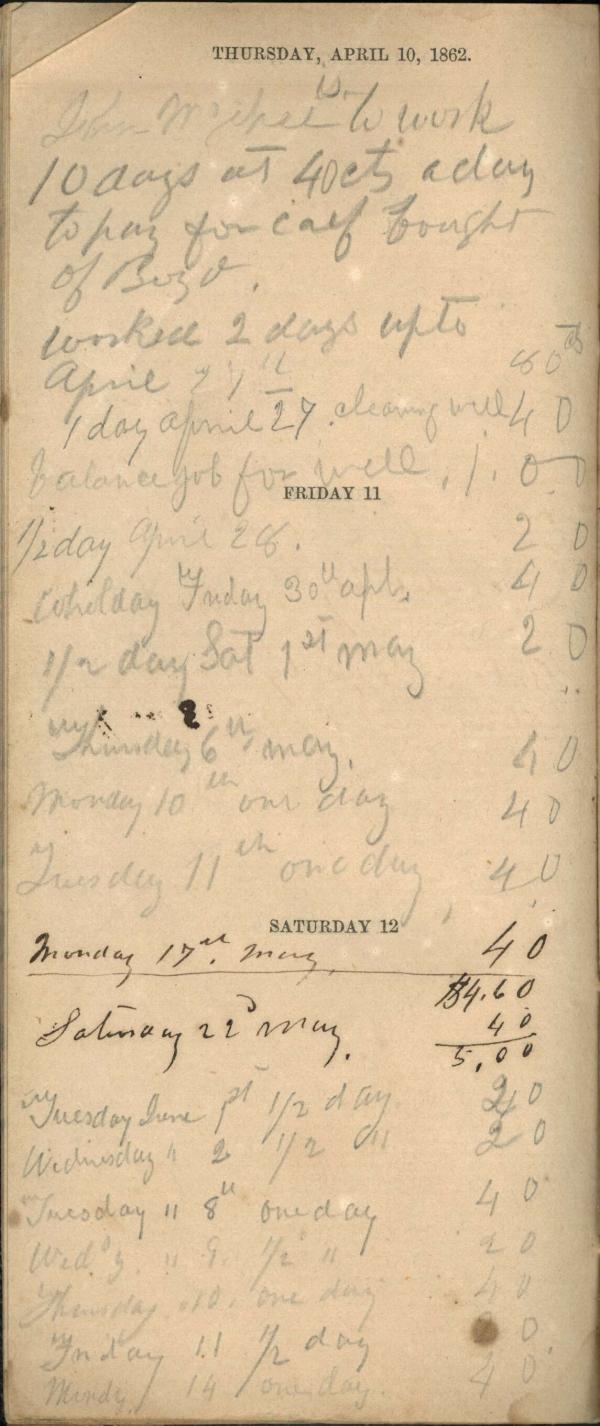 THURSDAY, APRIL 10, 1862.
is
John to work
10 days at 40cts a day
to pay for calf bought
of Boyd.
worked 2 days upto
April 80cts
1 day april 27. cleaning well 40
balance job for well, 1.00
FRIDAY 11
1/2 day April 28. 20
Whilday Friday 30th apl. 40
1/2 day Sat 1st may 20
Thursday 6th may. 40
Monday 10th one day 40
Tuesday 11th one day 40
SATURDAY 12
Monday 17th. may, 40
$4.60
Saturday 22d may. 40
5,00
Tuesday June 1st 1/2 day 20
Wednesday " 2 1/2 " 20
Tuesday " 8th one day 40
Wed'y " 9. 1/2 " 20
Thursday .10. one day 40
Friday 11 1/2 day 20
Mondy 14 one day. 40